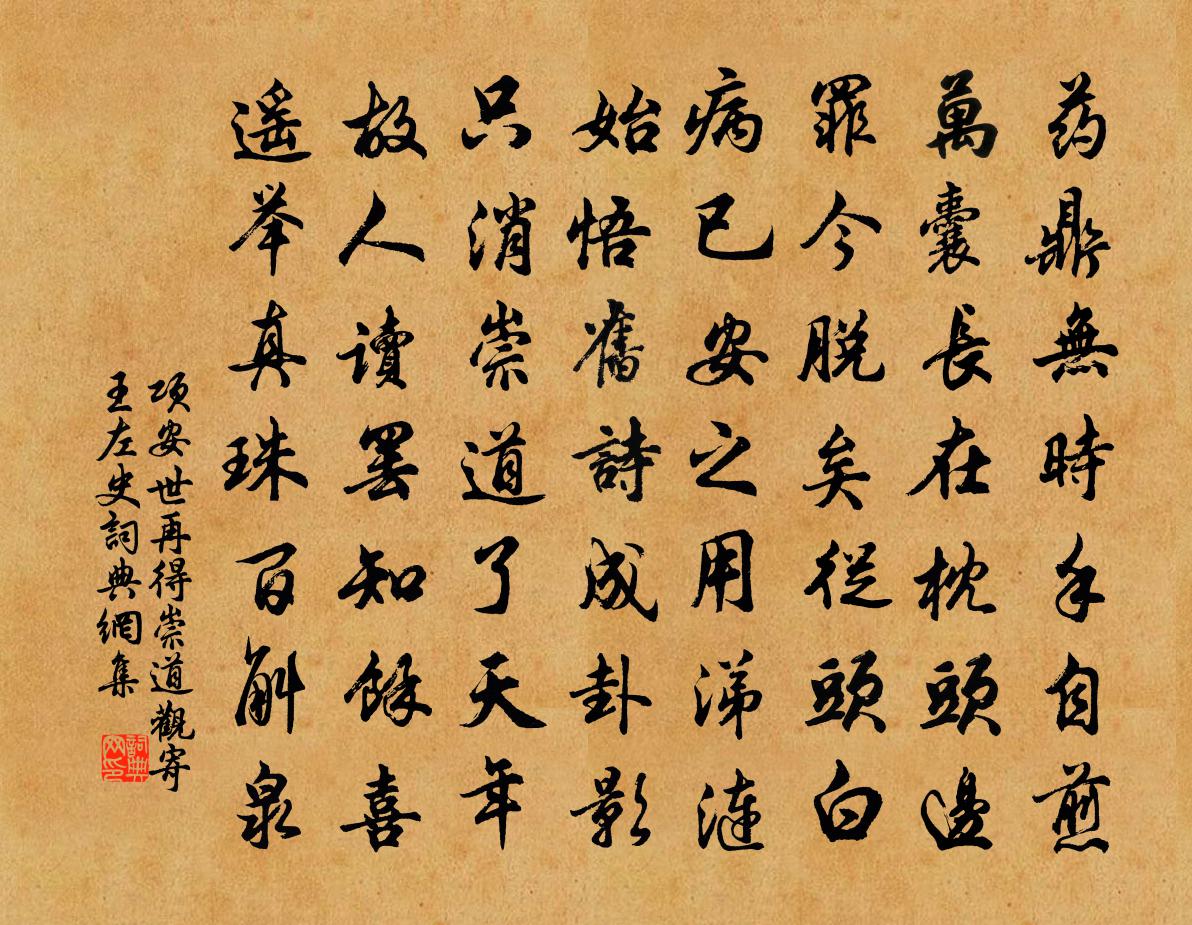 药鼎無時手自煎
萬囊長在枕頭邊
罪今脱矣從頭白
病已安之用涕漣
始悟舊詩成卦影
只消崇道了天年
故人讀罷知餘喜
遥举真珠百斛泉
项安世再得崇道觀寄
王左史詞典網集
詞典网印